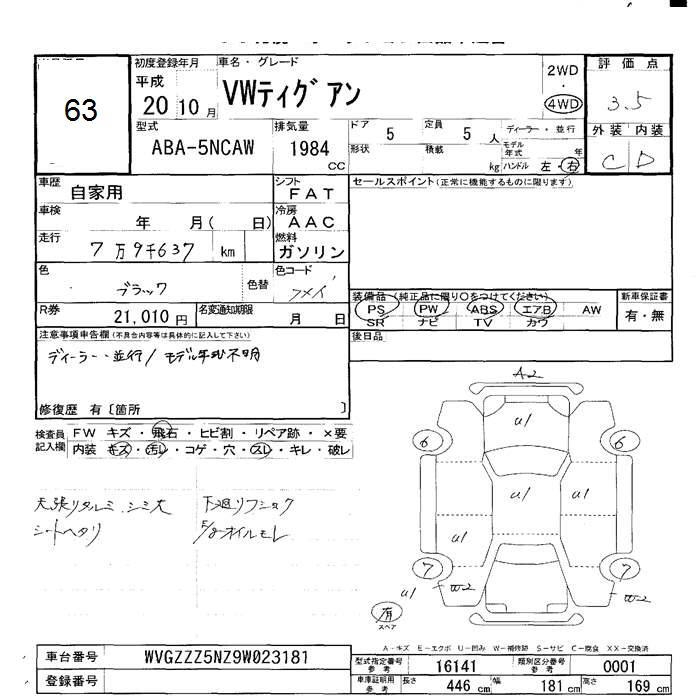 63
初度登録年月 車名・グレード
平成 20 10 月 VWティグアン
2WD ・ 4WD
評価点
3.5
外装 内装
C D
型式 排気量 ドア 定員 ディーラー・並行
ABA-5NCAW 1984 CC 5 5 人
モデル年式 年
形状 積載 kg ハンドル 左・右
車歴 自家用 シフト FAT セールスポイント(正常に機能するものに限ります)
車検 年 月( 日) 冷房 AAC
走行 7万9千637 km 燃料 ガソリン
色 ブラック 色替 色コード フメイ
装備品 (純正品に限り○をつけてください) 新車保証書
PS PW ABS エアB AW 有・無
SR ナビ TV カワ
R券 21,010 円 名変通知期限 月 日
後日品
注意事項申告欄(不具合内容等は具体的に記入して下さい)
ディーラー・並行/モデル年式不明
修復歴 有〔箇所 〕
検査員記入欄 FW キズ・飛石・ヒビ割・リペア跡・×要
内装 キズ・汚レ・コゲ・穴・スレ・キレ・破レ
天張リタルミ.シミ大 下廻リフショク
シートヘタリ E/gオイルモレ
A2
u1
6 6
u1 u1
u1
7 7
u1 W2 W2
有
スペア
A-キズ E-エクボ U-凹み W-補修跡 S-サビ C-腐食 XX-交換済
車台番号 WVGZZZ5NZ9W023181
登録番号
型式指定番号 参考 16141 類別区分番号 参考 0001
車庫証明用 参考 長さ 446 cm 幅 181 cm 高さ 169 cm